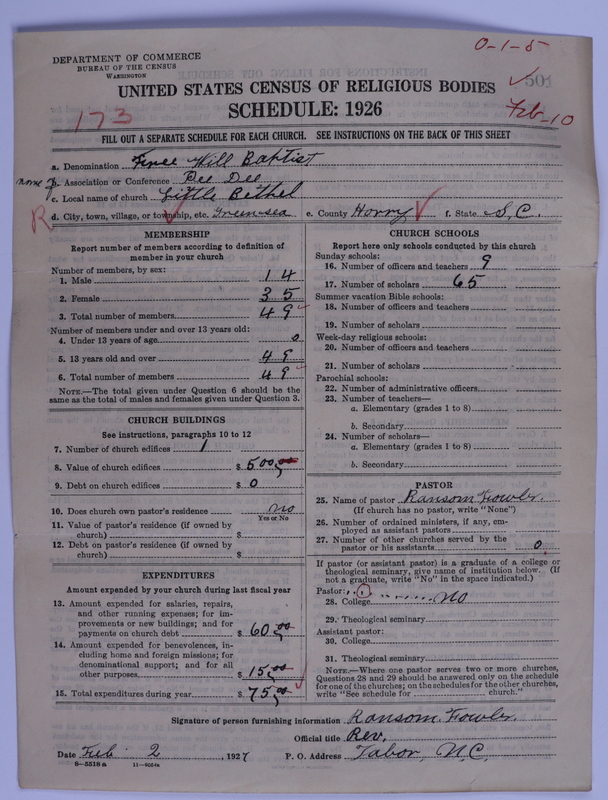 O-1-5
DEPARTMENT OF COMMERCE
BUREAU OF THE CENSUS
WASHINGTON
UNITED STATES CENSUS OF RELIGIOUS BODIES
501
SCHEDULE: 1926
173
Feb-10
FILL OUT A SEPARATE SCHEDULE FOR EACH CHURCH. SEE INSTRUCTIONS ON THE BACK OF THIS SHEET
a. Denomination Free Will Baptist
b. Association or Conference Pee Dee
c. Local name of church Little Bethel
R d. City, town, village, or township, etc. Greensea e. County Horry f. State S.C.
MEMBERSHIP
Report number of members according to definition of
member in your church
Number of members, by sex:
1. Male 14
2. Female 35
3. Total number of members 49
Number of members under and over 13 years old:
4. Under 13 years of age 0
5. 13 years old and over 49
6. Total number of members 49
NOTE.—The total given under Question 6 should be
same as the total of males and females given under Question 3.
CHURCH BUILDINGS
See instructions, paragraphs 10 to 12
7. Number of church edifices 1
8. Value of church edifices $ 500
9. Debt on church edifices $ 0
10. Does church own pastor's residence no
Yes or No
11. Value of pastor's residence (if owned by
church) $
12. Debt on pastor's residence (if owned by
church) $
EXPENDITURES
Amount expended by your church during last fiscal year
13. Amount expended for salaries, repairs,
and other running expenses; for im-
provements or new buildings; and for
payments on church debt $ 60.00
14. Amount expended for benevolences, in-
cluding home and foreign missions; for
denominational support; and for all
other purposes $ 15.00
15. Total expenditures during year $ 75.00
CHURCH SCHOOLS
Report here only schools conducted by this church
Sunday schools:
16. Number of officers and teachers 9
17. Number of scholars 65
Summer vacation Bible schools:
18. Number of officers and teachers
19. Number of scholars
Week-day religious schools:
20. Number of officers and teachers
21. Number of scholars
Parochial schools:
22. Number of administrative officers
23. Number of teachers—
a. Elementary (grades 1 to 8)
b. Secondary
24. Number of scholars—
a. Elementary (grades 1 to 8)
b. Secondary
PASTOR
25. Name of pastor Ransom Fowler.
(If church has no pastor, write "None")
26. Number of ordained ministers, if any, em-
ployed as assistant pastors
27. Number of other churches served by the
pastor or his assistants 0
If pastor (or assistant pastor) is a graduate of a college or
theological seminary, give name of institution below. (If
not a graduate, write "No" in the space indicated.)
Pastor:
28. College no
29. Theological seminary
Assistant pastor:
30. College
31. Theological seminary
NOTE.—Where one pastor serves two or more churches,
Questions 28 and 29 should be answered only on the schedule
for one of the churches; on the schedules for the other churches,
write "See schedule for church."
Signature of person furnishing information Ransom Fowler.
Official title Rev.
Date Feb 2, 1927 P. O. Address Tabor, N.C.
8—5518 a 11—9054a